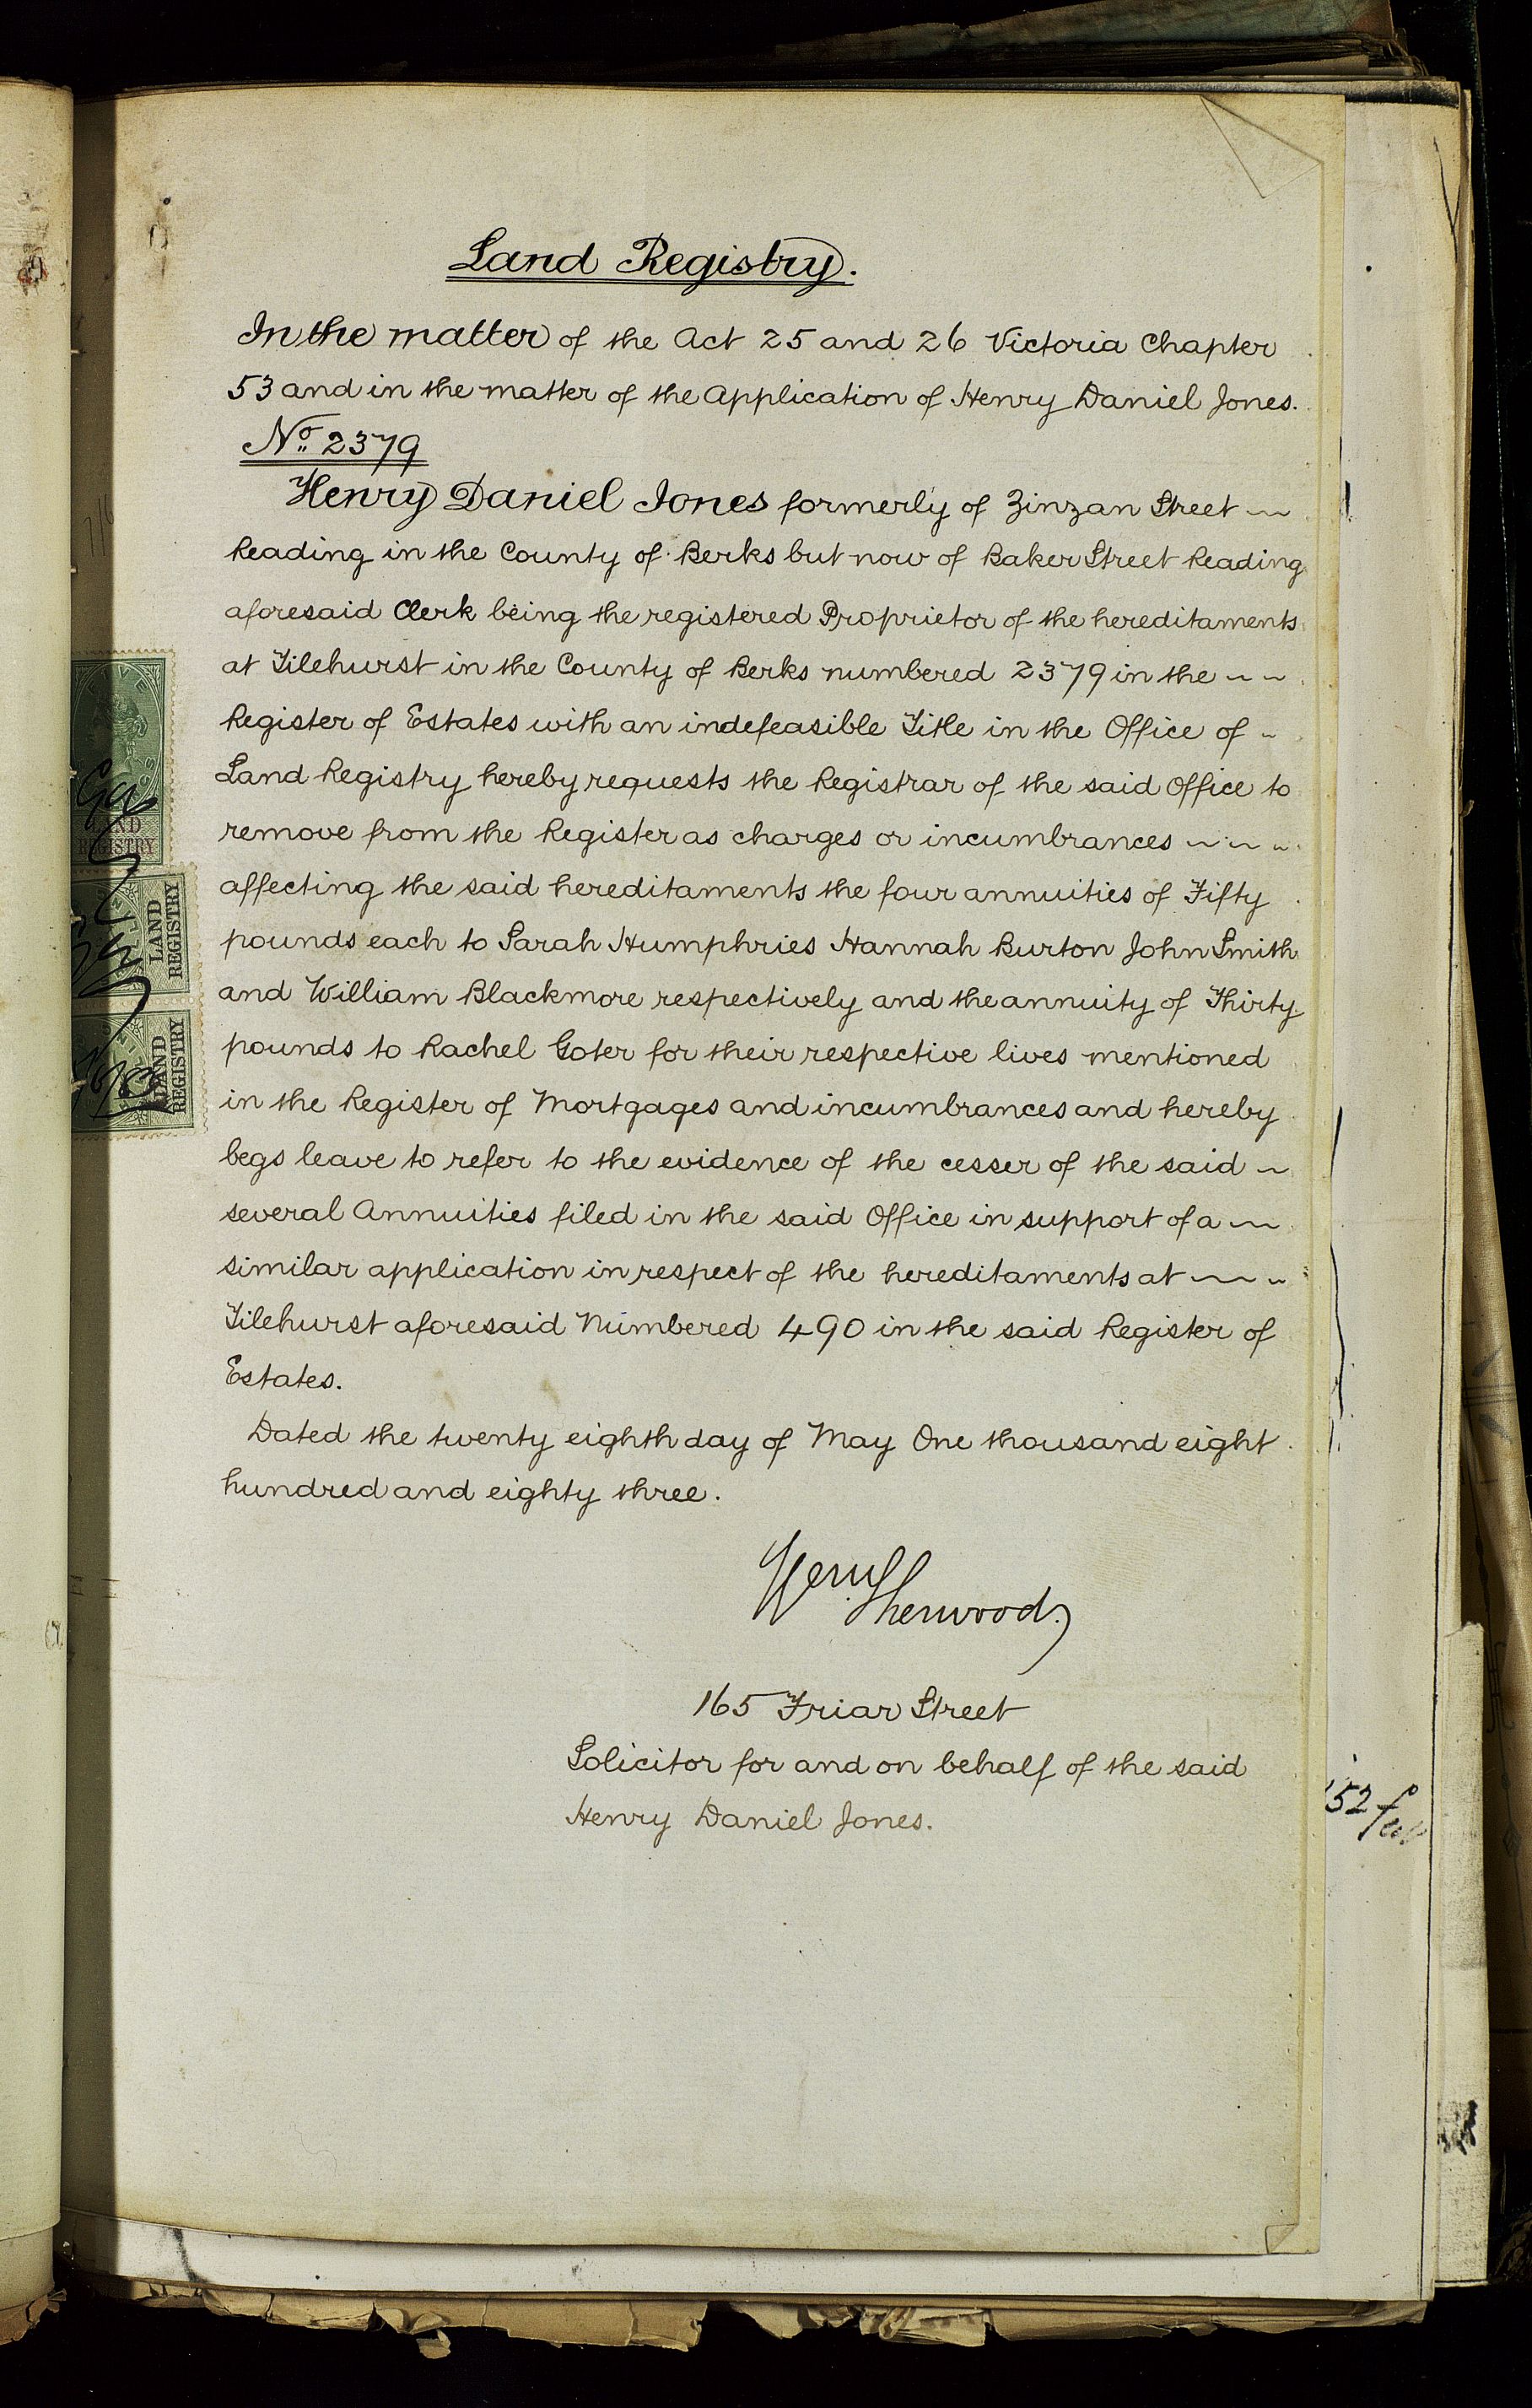 Land Registry.
In the matter of the Act 25 and 26 Victoria Chapter
53 and in the matter of the Application of Henry Daniel Jones.
No. 2379
Henry Daniel Jones formerly of Zinzan Street
Reading in the County of Berks but now of Baker Street Reading
aforesaid Clerk being the registered Proprietor of the hereditaments
at Tilehurst in the County of Berks numbered 2379 in the
Register of Estates with an indefeasible Title in the Office of
Land Registry hereby requests the Registrar of the said Office to
remove from the Register as charges or incumbrances
affecting the said hereditaments the four annuities of Fifty
pounds each to Sarah Humphries Hannah Burton John Smith
and William Blackmore respectively and the annuity of Thirty
pounds to Rachel Goter for their respective lives mentioned
in the Register of Mortgages and incumbrances and hereby
begs leave to refer to the evidence of the cesser of the said
several Annuities filed in the said Office in support of a
similar application in respect of the hereditaments at
Tilehurst aforesaid Numbered 490 in the said Register of
Estates.
Dated the twenty eighth day of May One thousand eight
hundred and eighty three.
Sherwood
165 Friar Street
Solicitor for and on behalf of the said
Henry Daniel Jones.
LAND
REGISTRY
LAND
REGISTRY
LAND
REGISTRY
152